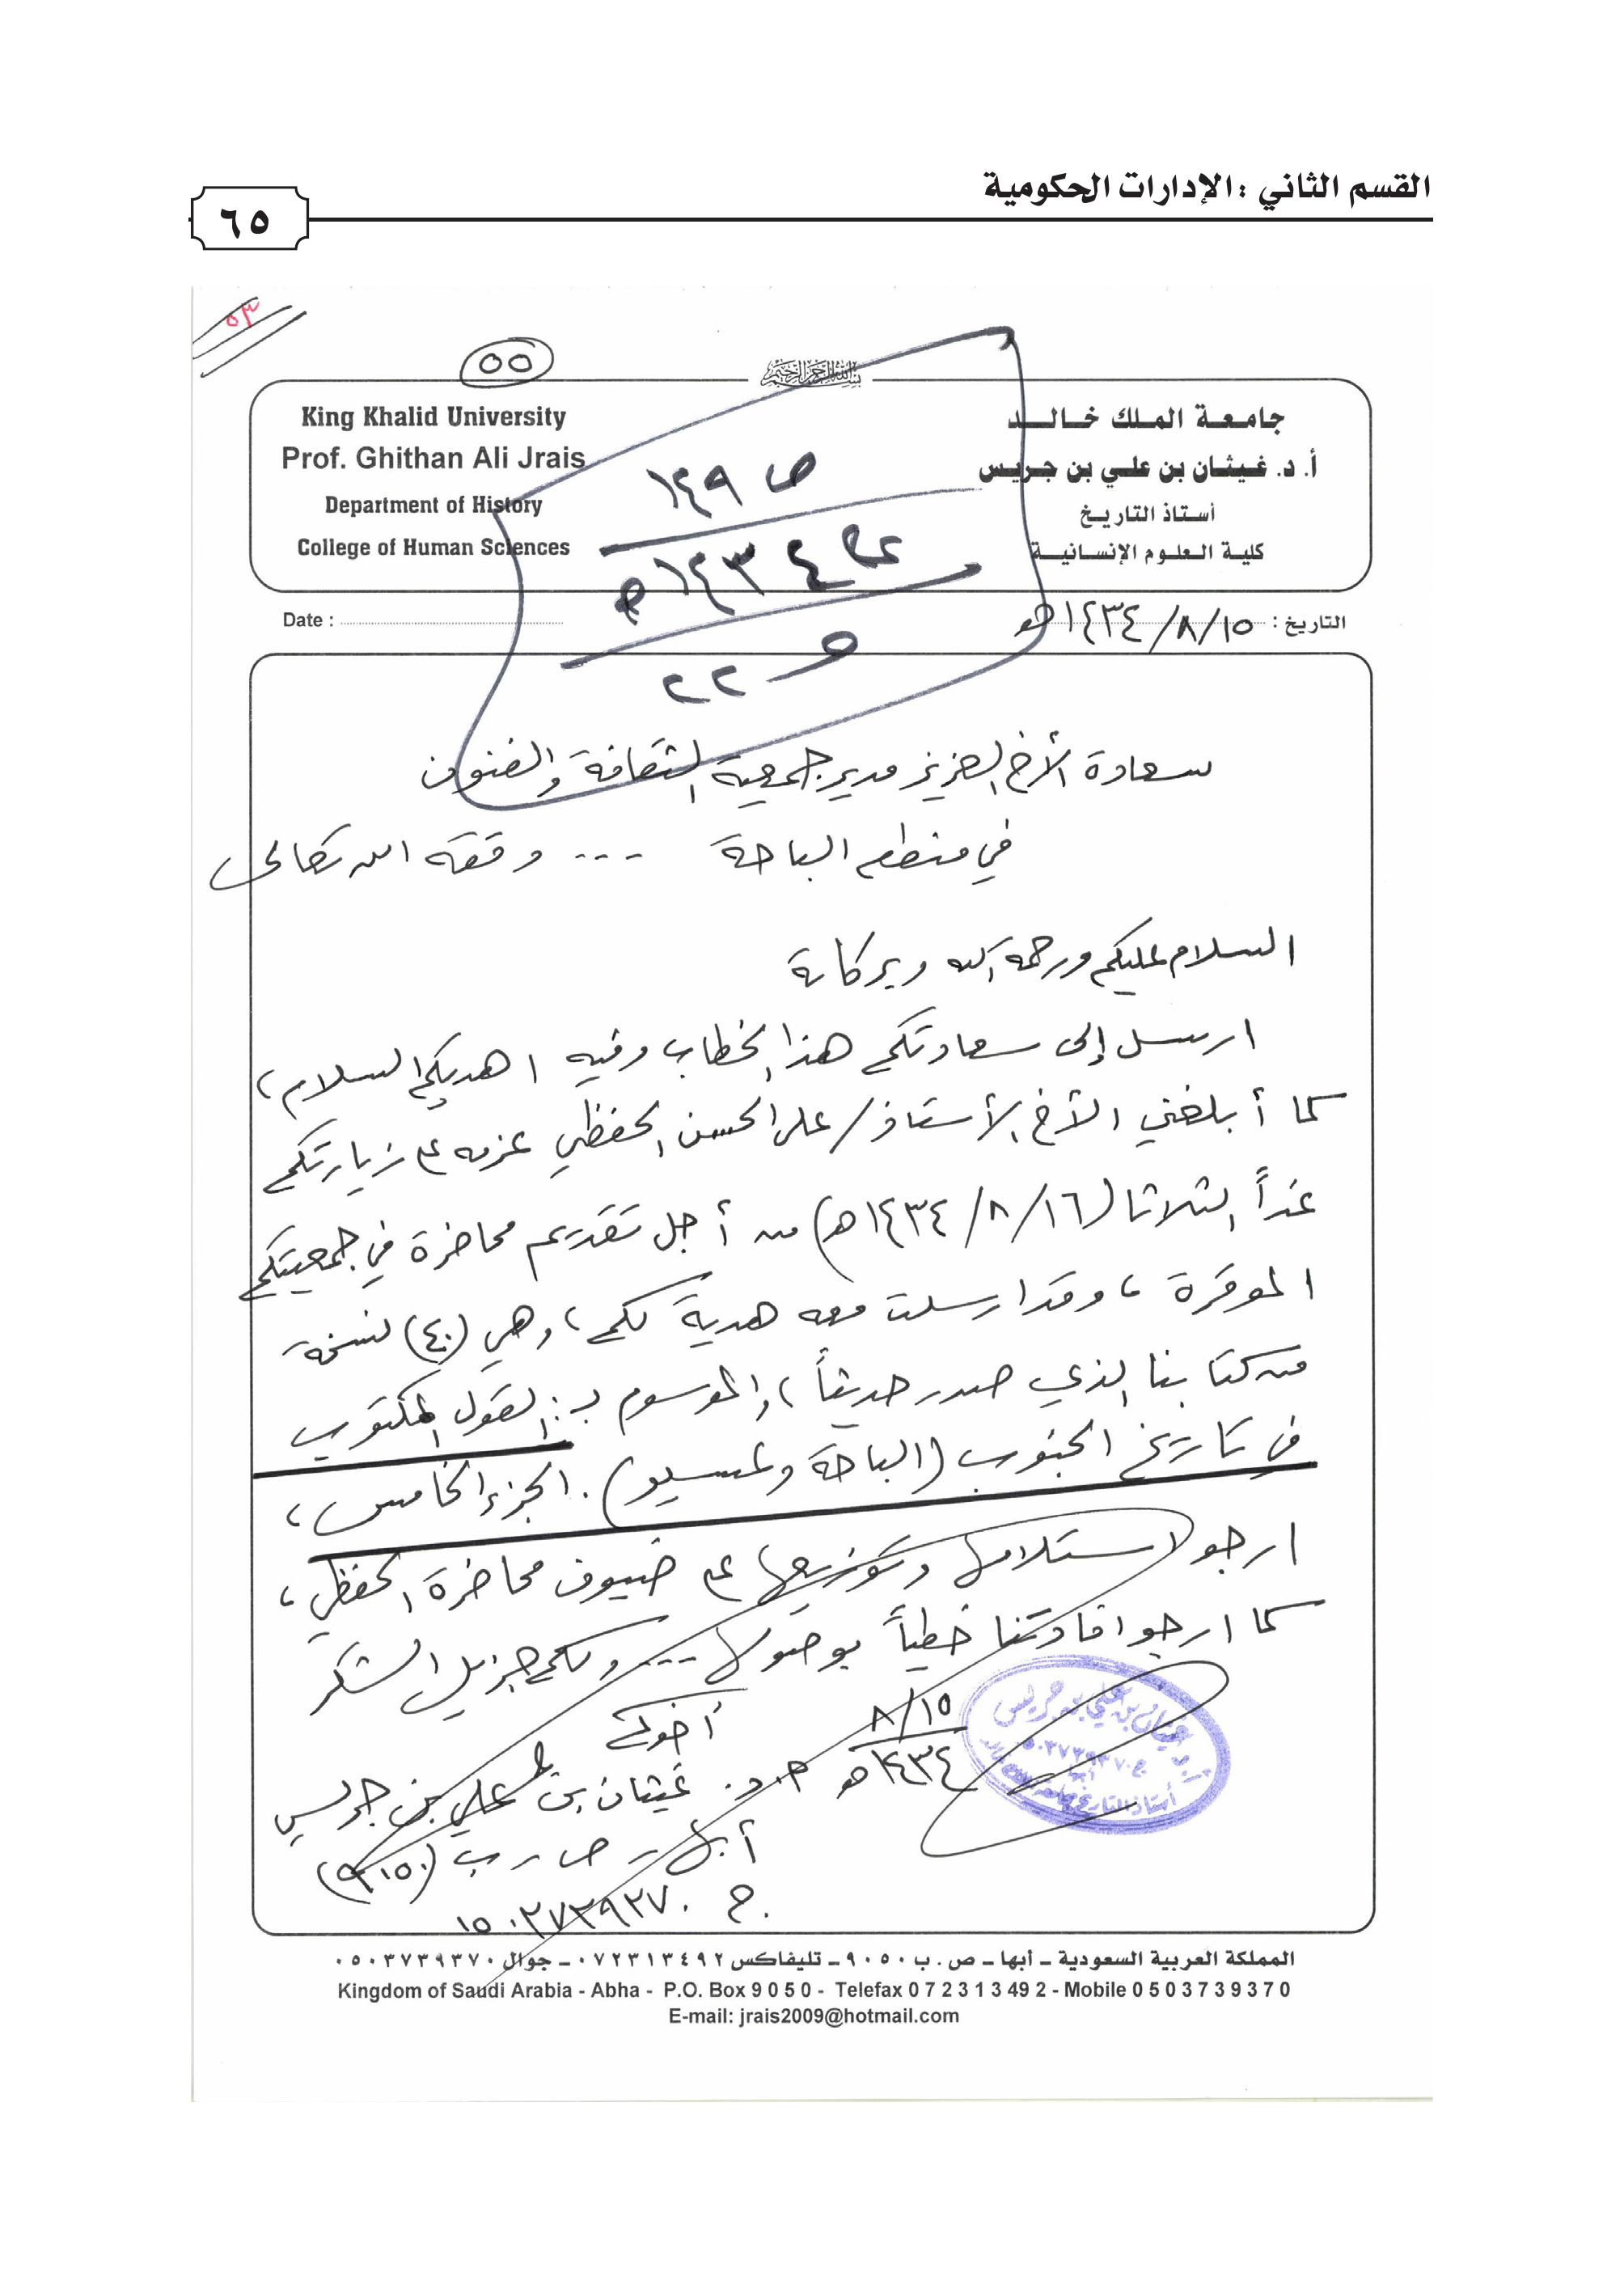 القسم الثاني : الإدارات الحكومية
٦٥
٥٣
٥٥
بسم الله الرحمن الرحيم
King Khalid University
Prof. Ghithan Ali Jrais
Department of History
College of Human Sciences
جامعة الملك خالد
أ. د. غيثان بن علي بن جريس
أستاذ التاريخ
كلية العلوم الإنسانية
ص ١٤٩
١٤٣٤هـ
و ٢٢
Date :
التاريخ : ١٥/٨/١٤٣٤هـ
سعادة الأخ العزيز مدير جمعية الثقافة والفنون
في منطقة الباحة --- وفقه الله تعالى
السلام عليكم ورحمة الله وبركاته
ارسل إلى سعادتكم هذا الخطاب وفيه اهديكم السلام،
كما أبلغني الأخ الأستاذ/ علي الحسن الحفظي عزمه على زيارتكم
غداً الثلاثا (١٦/٨/١٤٣٤هـ) من أجل تقديم محاضرة في جمعيتكم
الموقرة، وقد ارسلت معه هدية لكم، وهي (٤٠) نسخة
من كتابنا الذي صدر حديثاً، والموسوم بـ: القول المكتوب
في تاريخ الجنوب (الباحة وعسير). الجزء الخامس،
ارجو استلامها وتوزيعها على ضيوف محاضرة الحفظي،
كما ارجو افادتنا خطياً بوصولها --- ولكم جزيل الشكر
أخوكم
١٥/٨
١٤٣٤هـ
أ.د. غيثان بن علي بن جريس
أبها - ص.ب (٩٠٥٠)
ج ٠٥٠٣٧٣٩٣٧٠
غيثان بن علي بن جريس
ج ٠٥٠٣٧٣٩٣٧٠
أبها
أستاذ التاريخ
المملكة العربية السعودية - أبها - ص . ب ٩٠٥٠ - تليفاكس ٠٧٢٣١٣٤٩٢ - جوال ٠٥٠٣٧٣٩٣٧٠
Kingdom of Saudi Arabia - Abha - P.O. Box 9 0 5 0 - Telefax 0 7 2 3 1 3 49 2 - Mobile 0 5 0 3 7 3 9 3 7 0
E-mail: jrais2009@hotmail.com